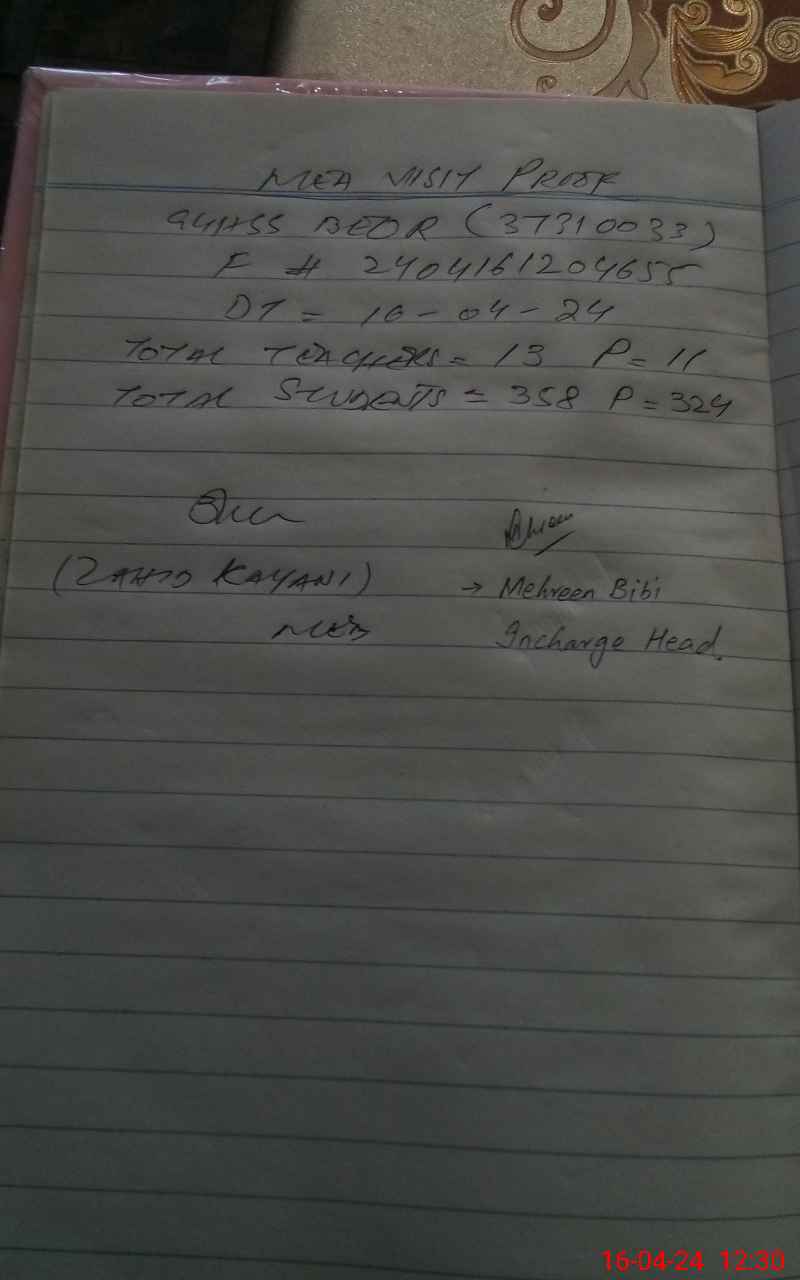 MEA VISIT PROOF
GGHSS BEOR (37310033)
F # 2404161204655
DT = 16-04-24
TOTAL TEACHERS = 13 P = 11
TOTAL STUDENTS = 358 P = 324
(ZAHID KAYANI)
→ Mehreen Bibi
MEA
Incharge Head.
16-04-24 12:30